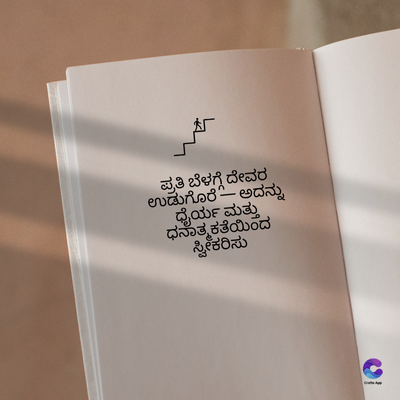 ಪ್ರತಿ ಬೆಳಗ್ಗೆ ದೇವರ
ಉಡುಗೊರೆ — ಅದನ್ನು
ಧೈರ್ಯ ಮತ್ತು
ಧನಾತ್ಮಕತೆಯಿಂದ
ಸ್ವೀಕರಿಸು
Crafto App